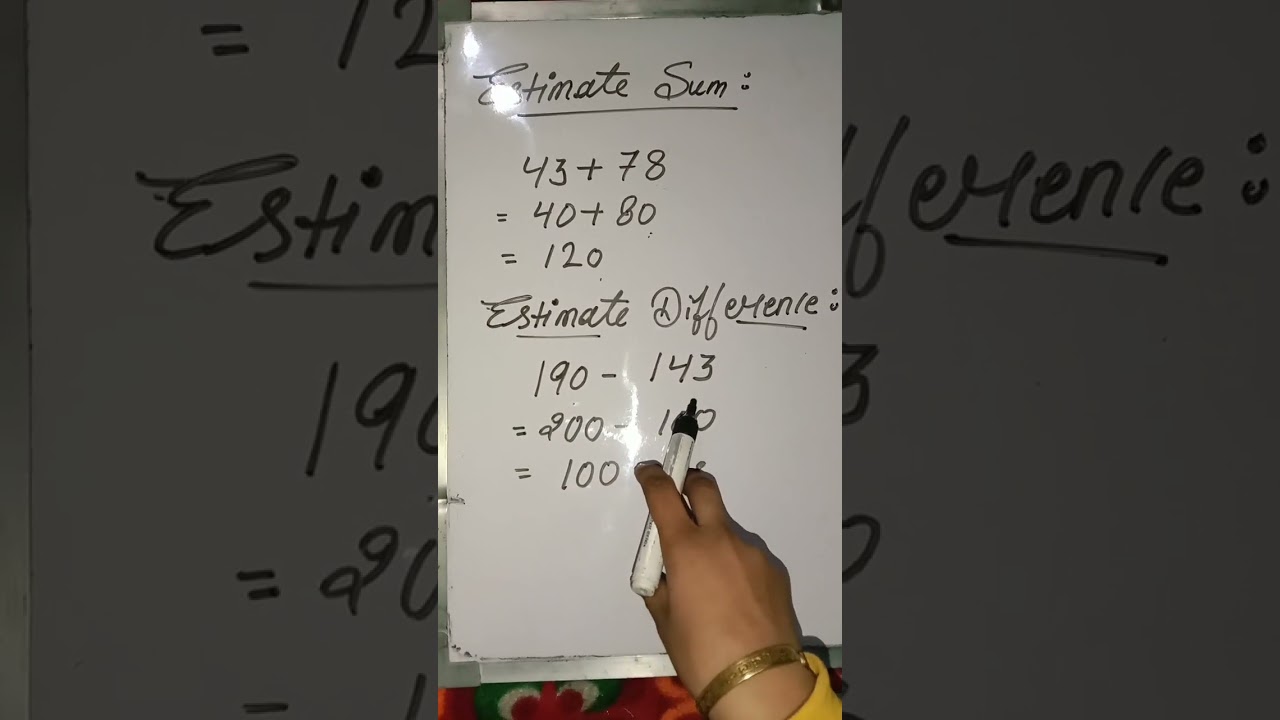 Estimate Sum:
43 + 78
= 40 + 80
= 120
Estimate Difference:
190 - 143
= 200 - 100
= 100